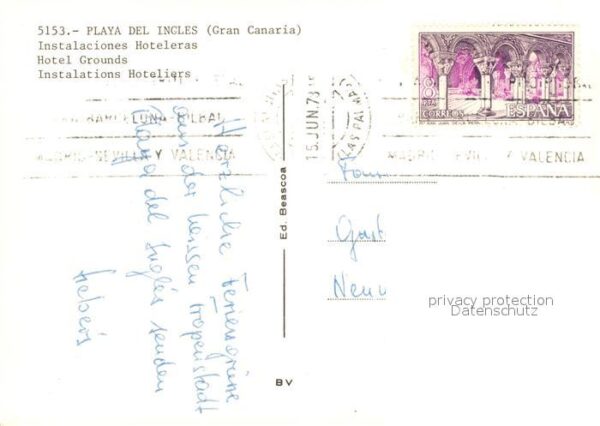 5153.- PLAYA DEL INGLES (Gran Canaria)
Instalaciones Hoteleras
Hotel Grounds
Installations Hoteliers
BARCELONA BILBAO
MADRID SEVILLA Y VALENCIA
15 JUN. 78
LAS PALMAS
8
PTA
CORREOS
ESPAÑA
MADRID SEVILLA Y VALENCIA
Herzliche Feriengrüsse
aus der heissen Tropenstadt
Playa del Inglés senden
Ed. Beascoa
BV
Fam
Gast
Neun
privacy protection
Datenschutz